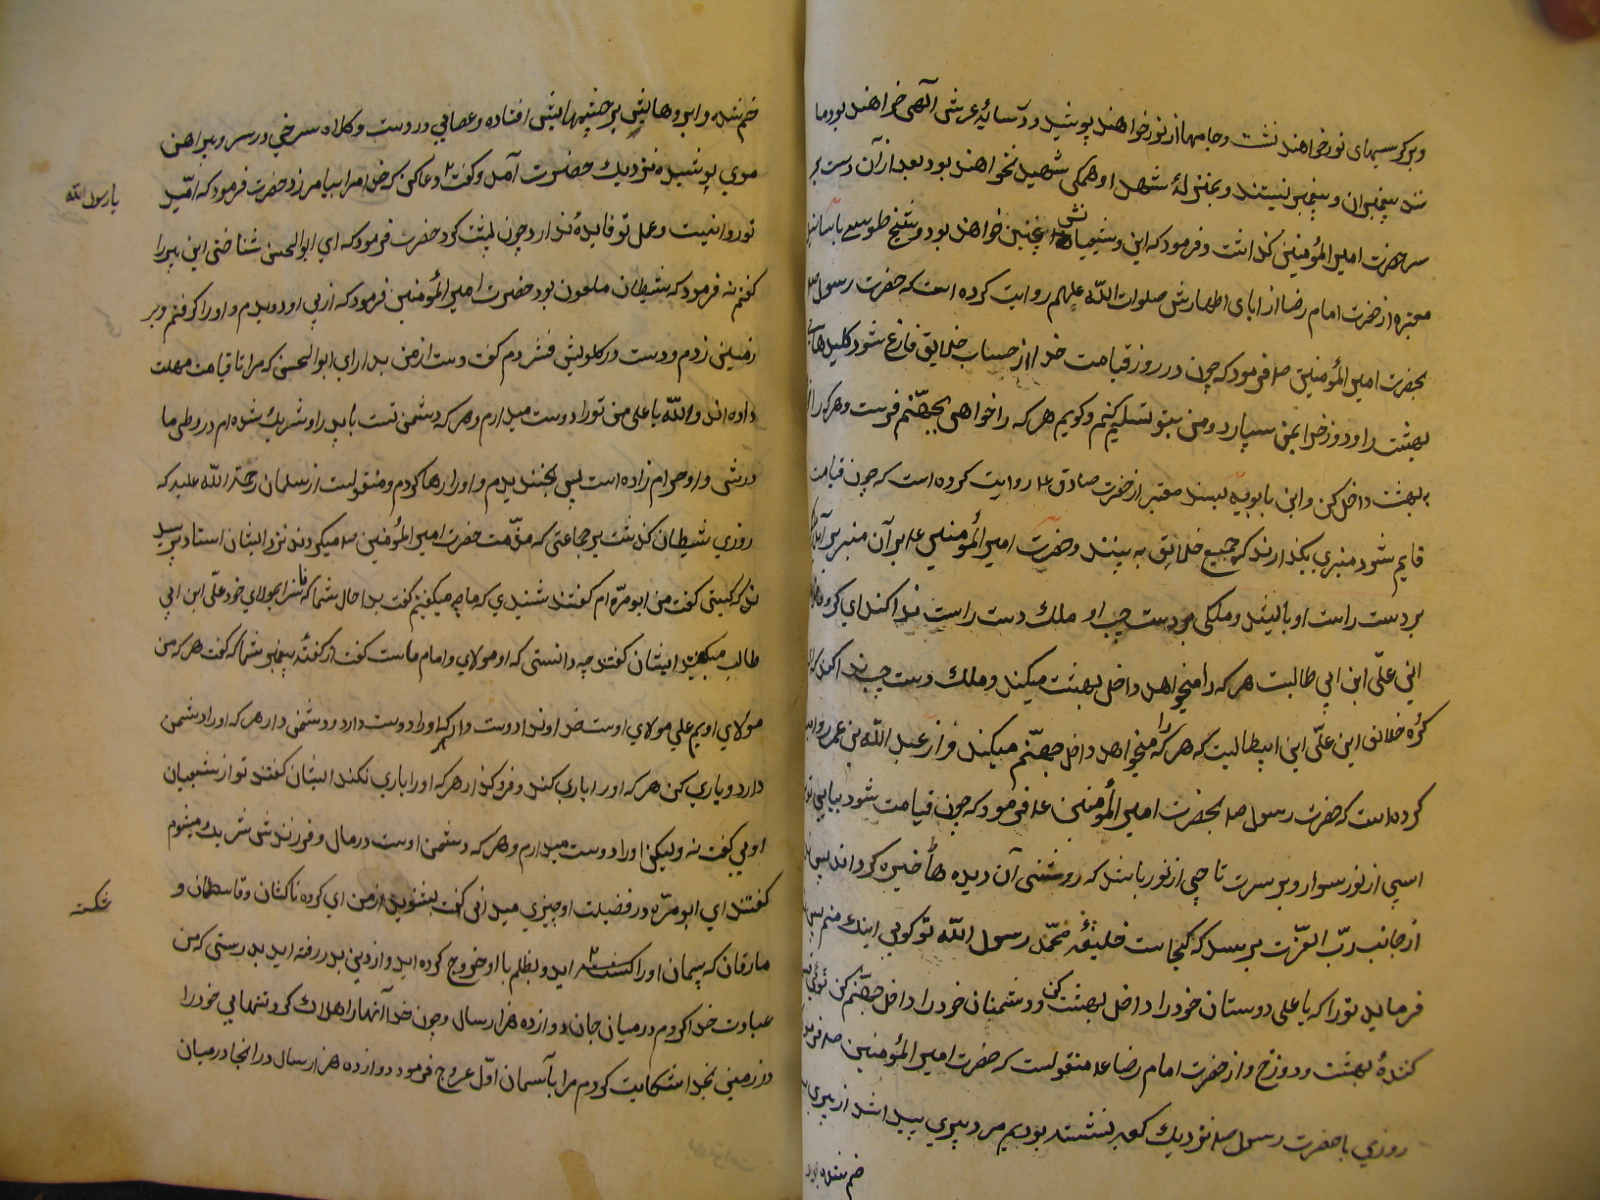 و بر کرسیهای نور خواهند نشست و جامهها از نور خواهند پوشید و در سایهٔ عرش الهی خواهند بود و ما
نند پیغمبران و پیغمبر نیستند و بمنزلهٔ شهدا و همکی شهید نخواهند بود بعد از آن دست بر
سر حضرت امیر المؤمنین کذاشت و فرمود که این و شیعیانش چنین خواهند بود و شیخ طوسی باسانید
معتبره از حضرت امام رضا از ابای اطهارش صلوات اللّه علیهم روایت کرده است که حضرت رسول ص
بحضرت امیر المؤمنین ص فرمود که چون در روز قیامت خدا از حساب خلایق فارغ شود کلیدهای
بهشت را و دوزخ را بمن سپارد و من بتو تسلیم کنم و کویم هر که را خواهی بجهنّم فرست و هر که را
به بهشت داخل کن و ابن بابویه بسند معتبر از حضرت صادق ع روایت کرده است که چون قیامت
قایم شود منبری بکذارند که جمیع خلایق به بینند و حضرت امیر المؤمنین ع بر آن منبر بر آید
بر دست راست او بایستد و ملکی بر دست چپ او ملک دست راست ندا کند ای کروه
این علّی ابن ابی طالبت هر که را میخواهد داخل بهشت میکند و ملک دست چپ ندا کند که
کروه خلایق این علّی ابن ابیطالبت که هر که را میخواهد داخل جهنّم میکند و از عبد اللّه بن عمر روایت
کرده است که حضرت رسول ص بحضرت امیر المؤمنین ع فرمود که چون قیامت شود بیایی تو
اسپی از نور سوار و بر سرت تاجی از نور باشد که روشنی آن دیده ها خیره کرداند پس
از جانب ربّ العزّت برسد که کجاست خلیفهٔ محمّد رسول اللّه تو کویی اینک منم پس
فرماید تو را که یا علی دوستان خود را داخل بهشت کن و دشمنان خود را داخل جهنّم کن توئی
کنندهٔ بهشت و دوزخ و از حضرت امام رضا ع منقولست که حضرت امیر المؤمنین ص فرمود
روزی با حضرت رسول ص نزدیک کعبه نشسته بودیم مرد پیری پیدا شد از پیری
خم شده بود
خم شده و ابروهایش بر چشمهایش افتاده و عصایی در دست و کلاه سرخی در سر و پیراهن
موی پوشیده نزدیک حضرت آمد و کفت دعا کن که خدا مرا بیامرزد حضرت فرمود که امّید
یا رسول اللّه
تو روا نیست و عمل تو فایده ندارد چون پشت کرد حضرت فرمود که ای ابو الحسن شناختی این پیر را
کفتم نه فرمود که شیطان ملعون بود حضرت امیر المؤمنین فرمود که از پی او دویدم و او را کرفتم و بر
زمین زدم و دست در کلویش فشردم کفت دست از من بدار ای ابو الحسن که مرا تا قیامت مهلت
داده اند و اللّه یا علی من تو را دوست میدارم و هر که دشمن تست با پدر او شریک شده ام در وطی ما
درش و او حرام زاده است پس بخندیدم و او را رها کردم و منقولست از سلمان رحمة اللّه علیه که
روزی شیطان کذشت بر جماعتی که مذّمت حضرت امیر المؤمنین ص میکردند نزد ایشان استاد پرسید
ند که کیستی کفت من ابو مرّه ام کفتند شنیدی که ما چه میکفتیم کفت بدا حال شما که ناسزا بمولای خود علّی ابن ابی
طالب میکویید ایشان کفتند چه دانستی که او مولای و امام ماست کفت از کفتهٔ پیغمبر شما که کفت هر که من
مولای اویم علی مولای اوست خداوندا دوست دار هر که او را دوست دارد و دشمن دار هر که او را دشمن
دارد و یاری کن هر که او را یاری کند و فرو کذار هر که او را یاری نکند ایشان کفتند تو از شیعیان
اویی کفت نه ولیکن او را دوست میدارم و هر که دشمن اوست در مال و فرزندش شریک میشوم
کفتند ای ابو مرّه در فضیلت او چیزی میدانی کفت بشنوید از من ای کروه ناکثان و قاسطان و
مارقان که پیمان او را اید و بظلم با او خروج کرده اید و از دین بدر رفته اید بدرستی که من
شکسته
عبادت خدا کردم در میان جان دوازده هزار سال و چون خدا آنها را هلاک کرد تنهایی خود را
در زمین بخدا شکایت کردم مرا بآسمان اوّل عروج فرمود دوازده هزار سال در انجا در میان